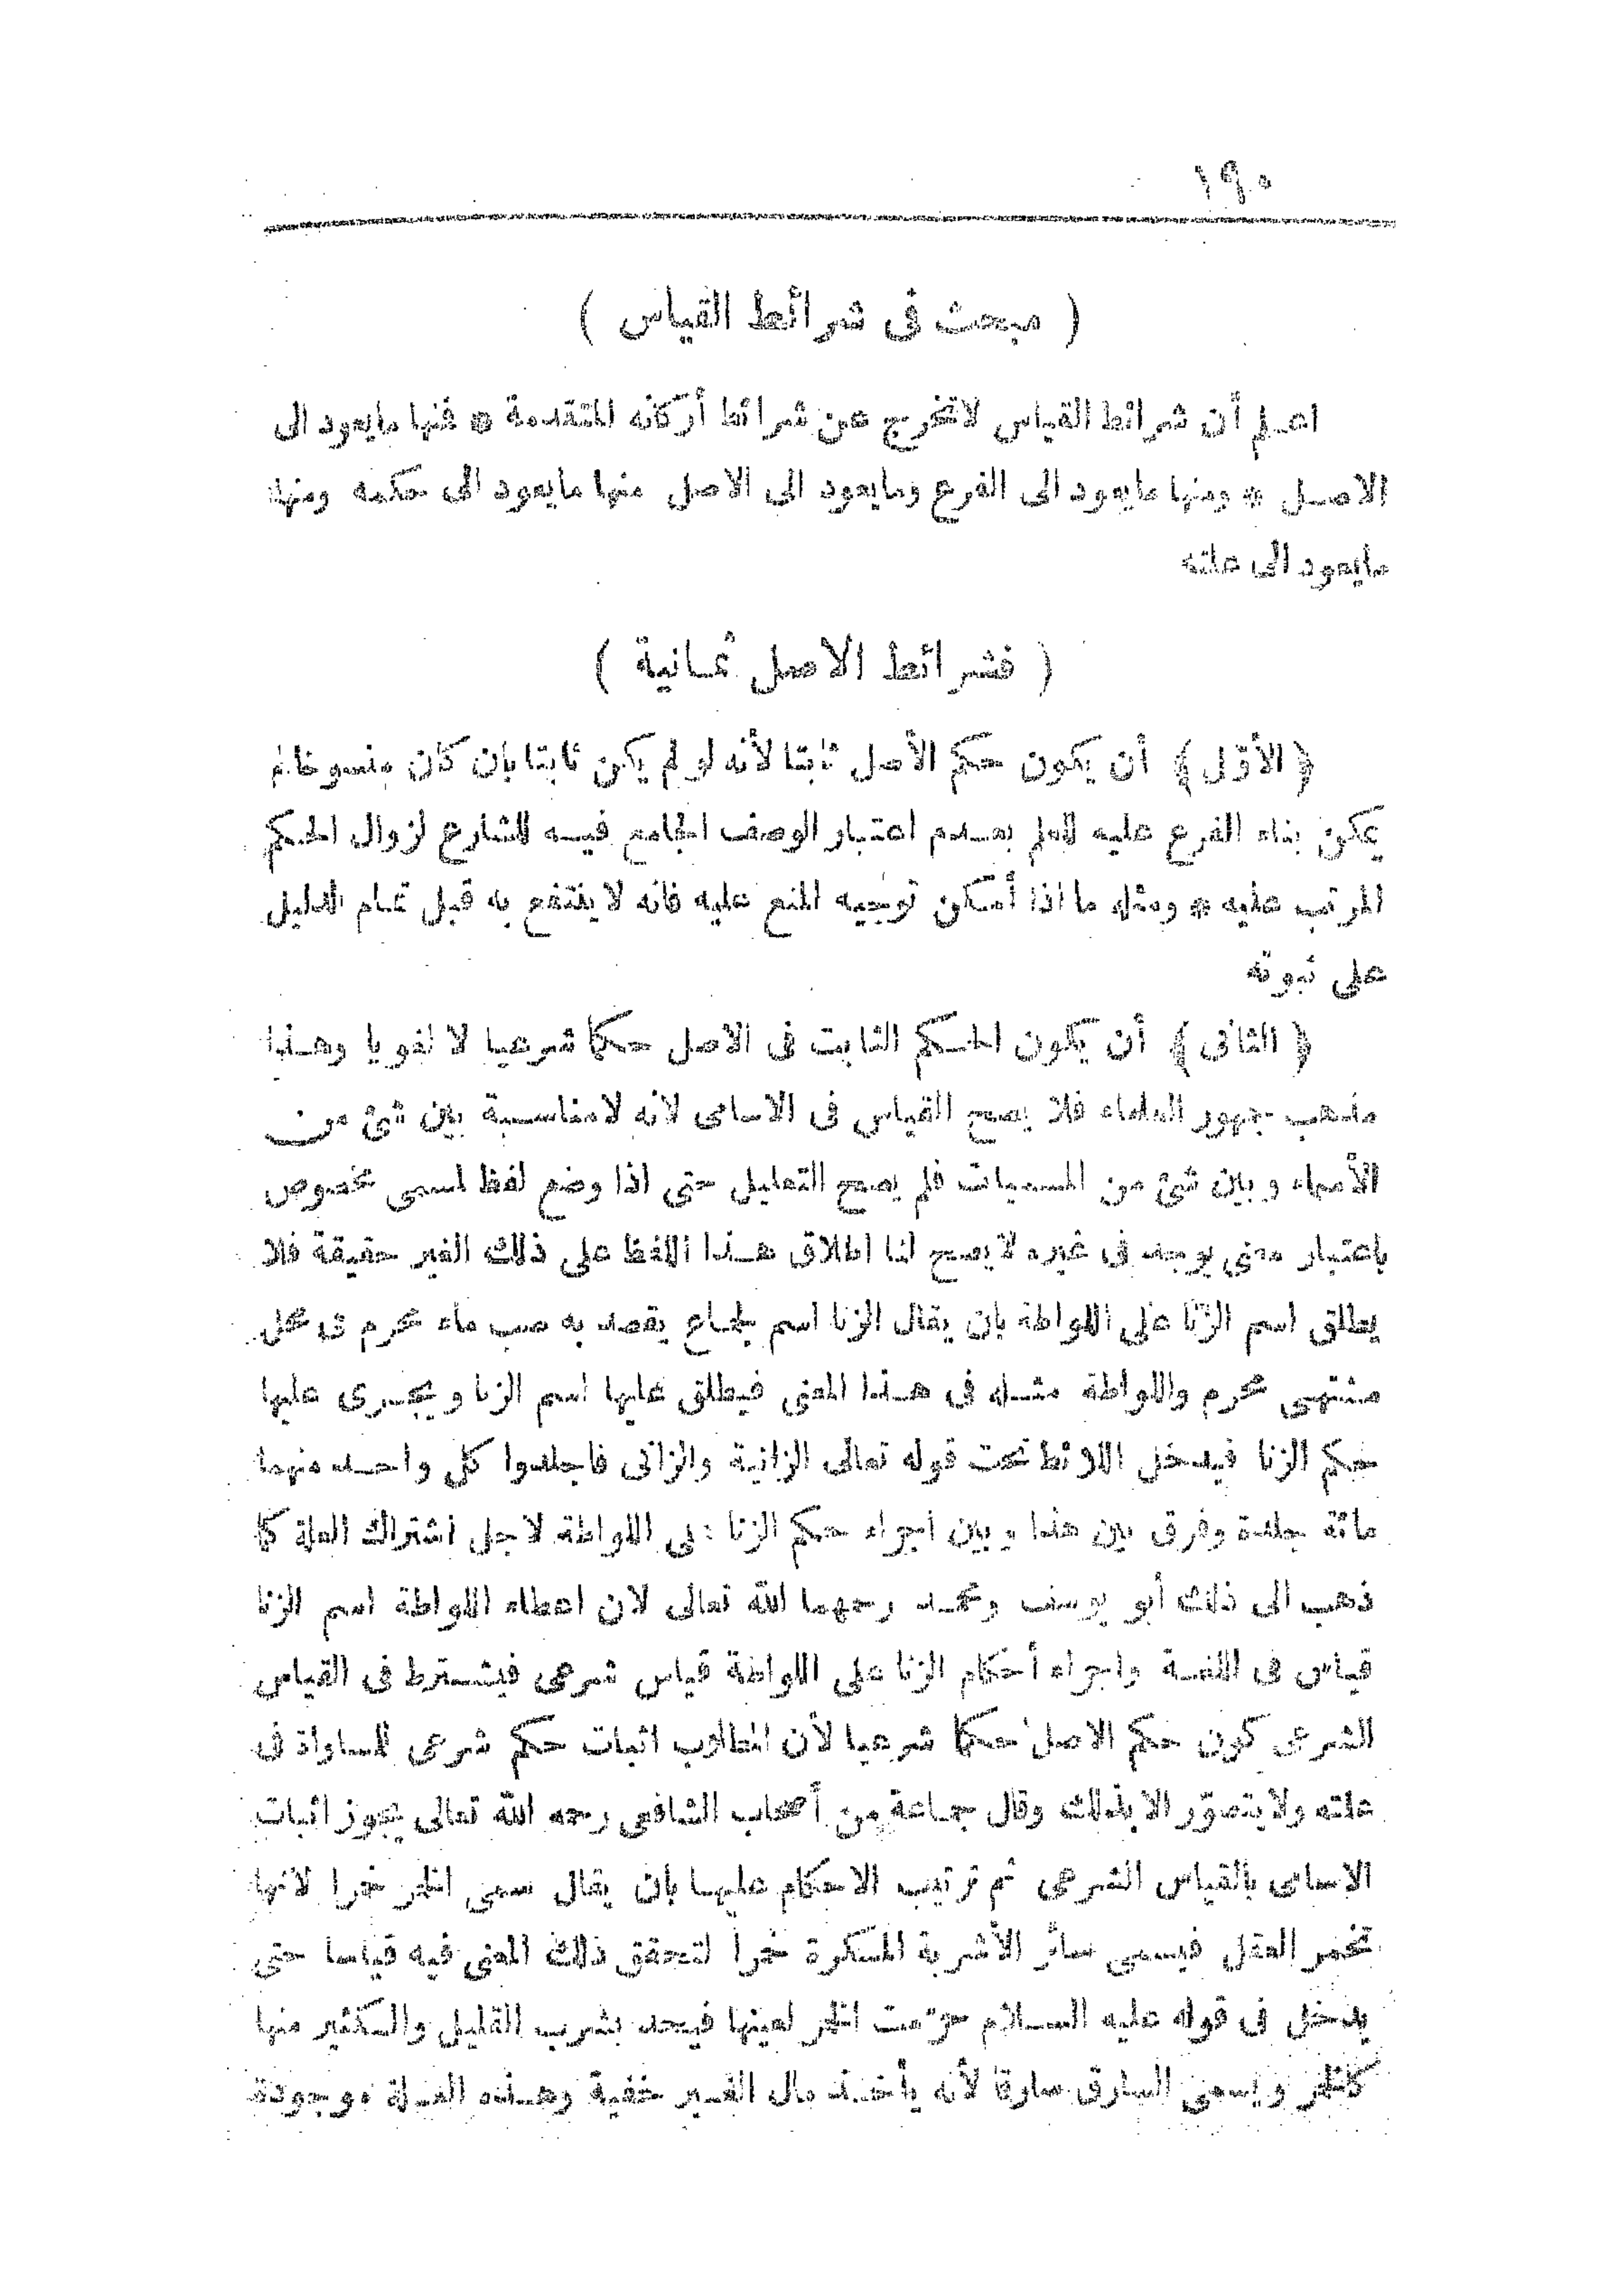 ١٩٠
( مبحث فى شرائط القياس )
اعلم أن شرائط القياس لاتخرج عن شرائط أركانه المتقدمة * فمنها مايعود الى
الاصل * ومنها مايعود الى الفرع ومايعود الى الاصل منها مايعود الى حكمه ومنها
مايعود الى علته
( فشرائط الاصل ثمانية )
﴿ الأوّل ﴾ أن يكون حكم الأصل ثابتا لأنه لو لم يكن ثابتا بان كان منسوخا لم
يمكن بناء الفرع عليه للعلم بعدم اعتبار الوصف الجامع فيه للشارع لزوال الحكم
المرتب عليه * ومثله ما اذا أمكن توجيه المنع عليه فانه لا ينتفع به قبل تمام الدليل
على ثبوته
﴿ الثانى ﴾ أن يكون الحكم الثابت فى الاصل حكما شرعيا لا لغويا وهذا
مذهب جمهور العلماء فلا يصح القياس فى الاسامى لانه لامناسبة بين شئ من
الأسماء وبين شئ من المسميات فلم يصح التعليل حتى اذا وضع لفظ لمسمى مخصوص
باعتبار معنى يوجد فى غيره لا يصح لنا اطلاق هذا اللفظ على ذلك الغير حقيقة فلا
يطلق اسم الزنا على اللواطة بان يقال الزنا اسم لجماع يقصد به صب ماء محرم فى محل
مشتهى محرم واللواطة مثله فى هذا المعنى فيطلق عليها اسم الزنا ويجرى عليها
حكم الزنا فيدخل اللائط تحت قوله تعالى الزانية والزانى فاجلدوا كل واحد منهما
مائة جلدة وفرق بين هذا وبين اجراء حكم الزنا فى اللواطة لاجل اشتراك العلة كما
ذهب الى ذلك أبو يوسف ومحمد رحمهما الله تعالى لان اعطاء اللواطة اسم الزنا
قياس فى اللغة واجراء أحكام الزنا على اللواطة قياس شرعى فيشترط فى القياس
الشرعى كون حكم الاصل حكما شرعيا لأن المطلوب اثبات حكم شرعى للمساواة فى
علته ولا يتصوّر الا بذلك وقال جماعة من أصحاب الشافعى رحمه الله تعالى يجوز اثبات
الاسامى بالقياس الشرعى ثم ترتيب الاحكام عليها بان يقال سمى الخمر خمرا لانها
تخمر العقل فيسمى سائر الأشربة المسكرة خمرا لتحقق ذلك المعنى فيه قياسا حتى
يدخل فى قوله عليه السلام حرّمت الخمر لعينها فيحد بشرب القليل والكثير منها
كالخمر ويسمى السارق سارقا لأنه يأخذ مال الغير خفية وهذه العلة موجودة